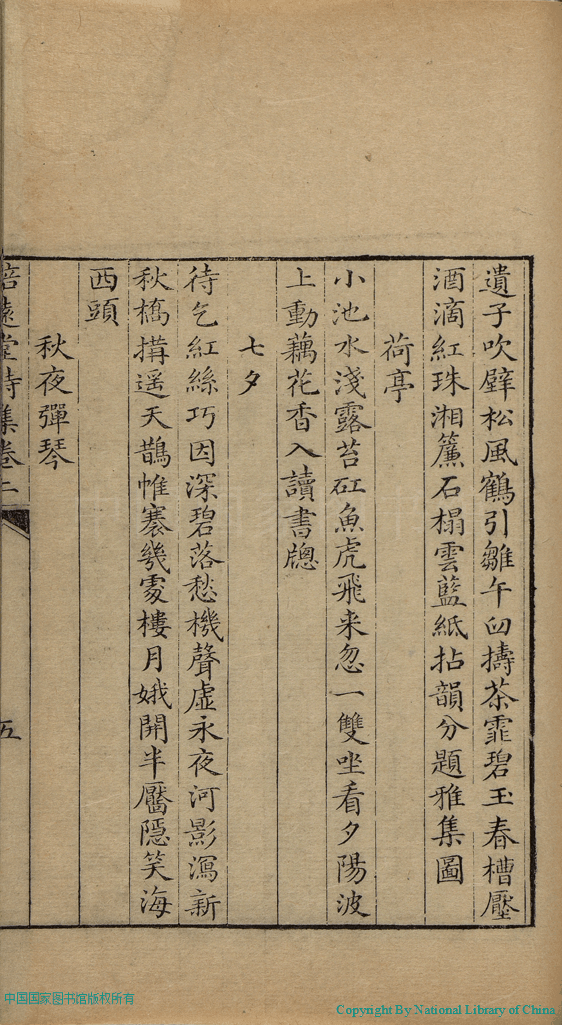 遺子吹壁松風鶴引雛午臼擣茶霏碧玉春槽壓
酒滴紅珠湘簾石榻雲藍紙拈韻分題雅集圖
荷亭
小池水淺露苔矼魚虎飛来忽一雙坐看夕陽波
上動藕花香入讀書牕
七夕
待乞紅絲巧因深碧落愁機聲虛永夜河影瀉新
秋橋搆遥天鵲帷褰幾處樓月娥開半靨隱笑海
西頭
秋夜彈琴
培遠堂詩集卷二
五
中国国家图书馆版权所有
Copyright By National Library of China